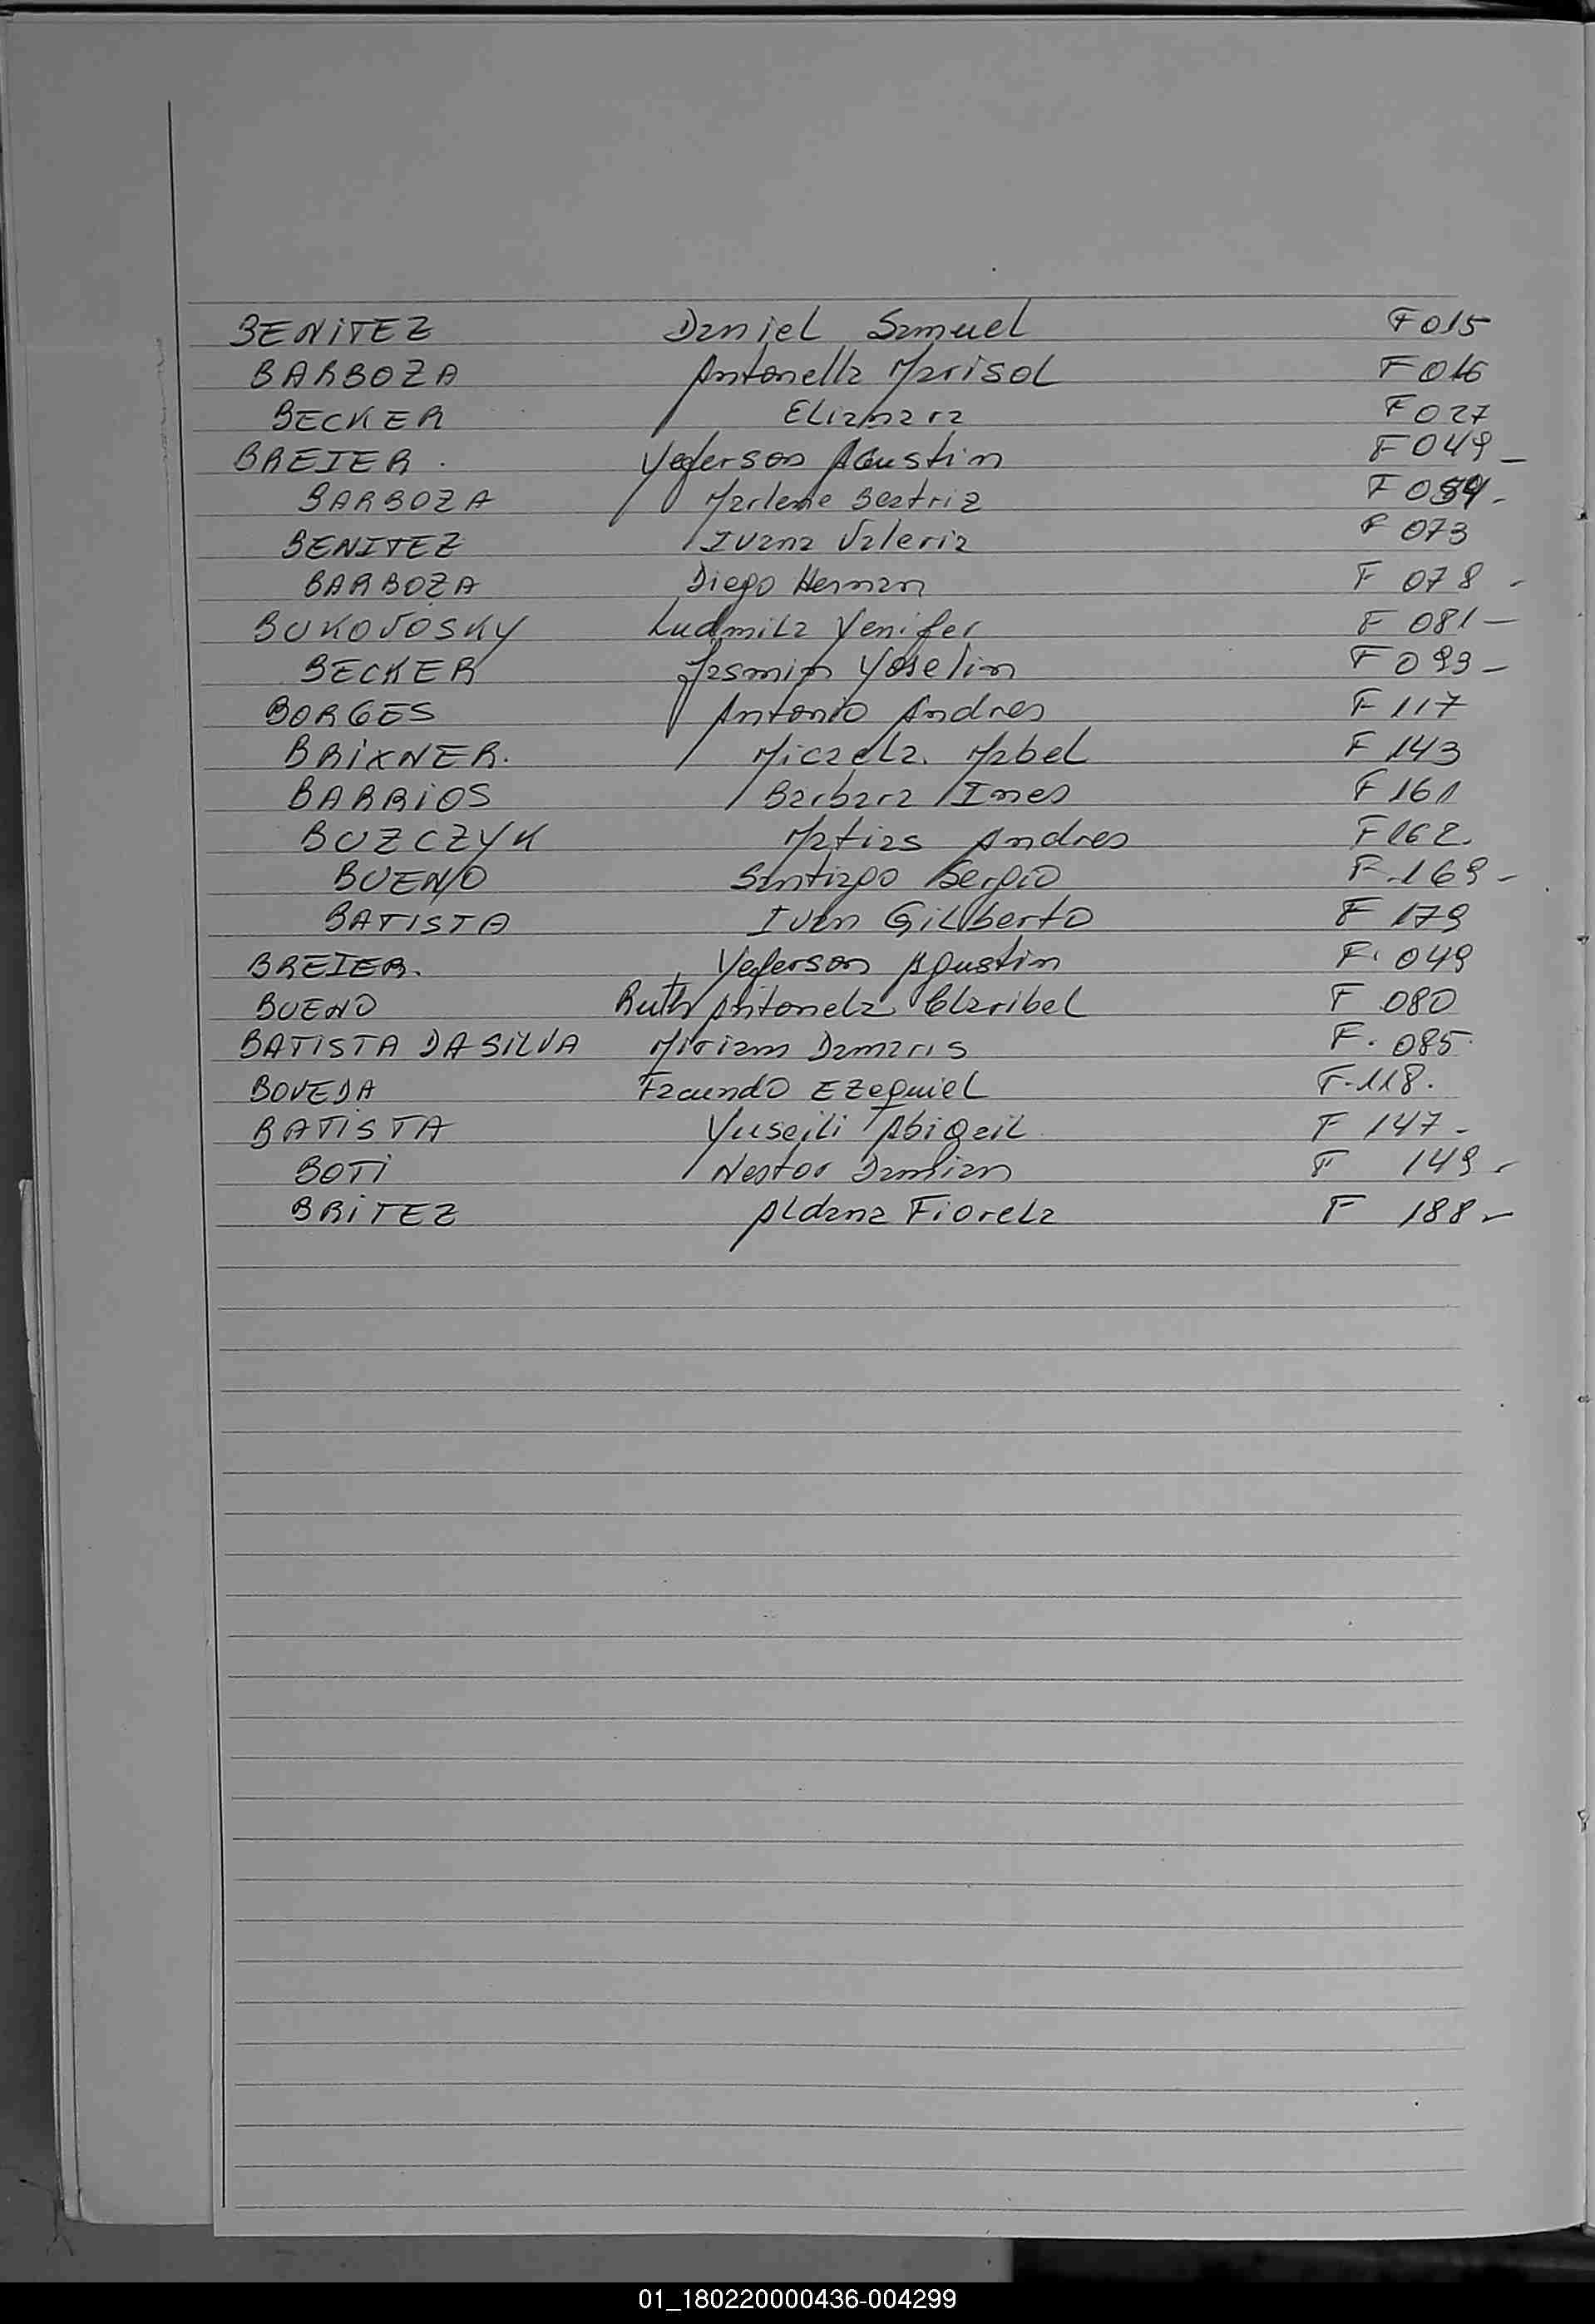 BENITEZ Daniel Samuel F 015
BARBOZA Antonella Marisol F 016
BECKER Elianara F 027
BREIER. Yeferson Agustin F 049_
BARBOZA Marlene Beatriz F 054-
BENITEZ Ivana Valeria F 073
BARBOZA Diego Hernan F 078-
BUKOVOSKY Ludmila Yenifer F 081-
BECKER Jasmin Yoselin F 093-
BORGES Antonio Andres F 117
BRIXNER. Micaela. Mabel F 143
BARRIOS Barbara Ines F 161
BUZCZYK Matias Andres F 162.
BUENO Santiago Sergio F-169-
BATISTA Ivan Gilberto F 179
BREIER. Yeferson Agustin F. 049
BUENO Ruth Antonela Claribel F 080
BATISTA DA SILVA Miriam Damaris F. 085.
BOVEDA Facundo Ezequiel F-118.
BATISTA Yuseili Abigail F 147-
BOTI Nestor Damian F 149-
BRITEZ Aldana Fiorela F 188-
01_180220000436-004299